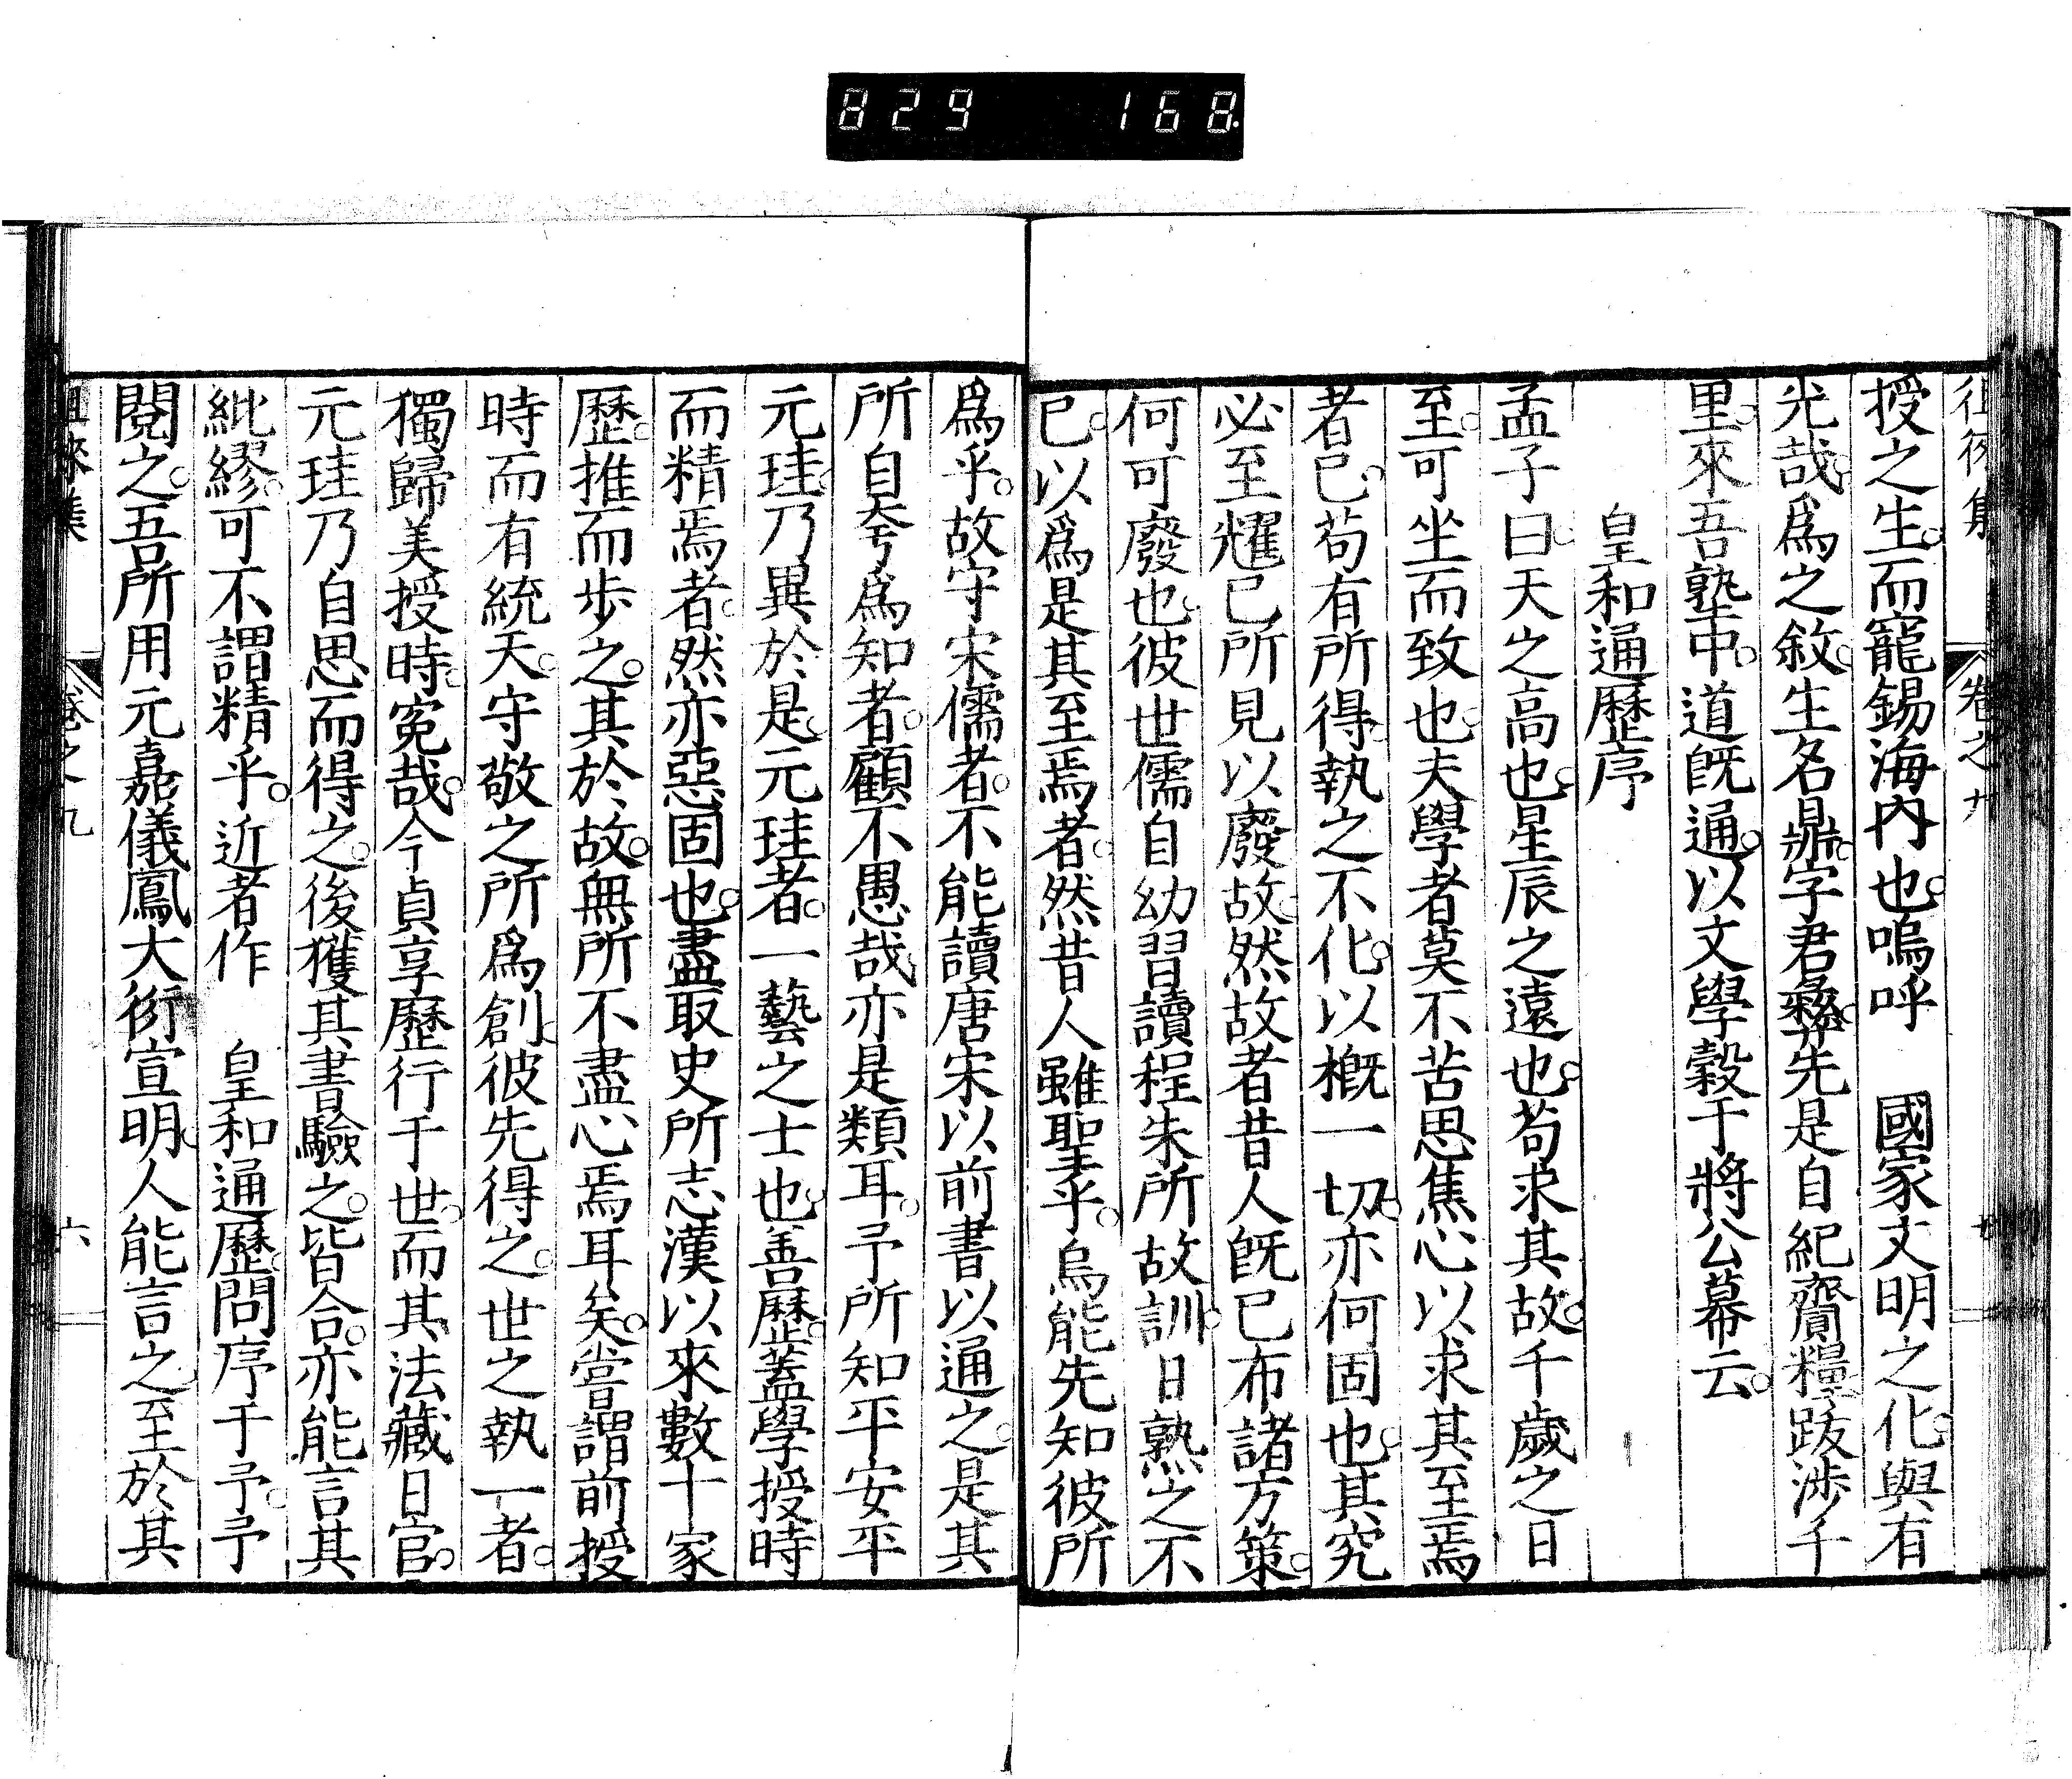 829 168
徂徠集 卷之九
授之生而寵錫海內也嗚呼 國家文明之化與有
光哉爲之敘生名鼎字君彝先是自紀齎糧跋渉千
里來吾塾中道既通以文學穀于將公幕云
皇和通曆序
孟子曰天之高也星辰之遠也苟求其故千歲之日
至可坐而致也夫學者莫不苦思焦心以求其至焉
者已苟有所得執之不化以概一切亦何固也其究
必至耀已所見以廢故然故者昔人既已布諸方策
何可廢也彼世儒自幼習讀程朱所故訓日熟之不
已以爲是其至焉者然昔人雖聖乎烏能先知彼所
爲乎故守宋儒者不能讀唐宋以前書以通之是其
所自夸爲知者顧不愚哉亦是類耳予所知平安平
元珪乃異於是元珪者一藝之士也善曆蓋學授時
而精焉者然亦惡固也盡取史所志漢以來數十家
曆推而步之其於故無所不盡心焉耳矣嘗謂前授
時而有統天守敬之所爲創彼先得之世之執一者
獨歸美授時寃哉今貞享曆行于世而其法藏日官
元珪乃自思而得之後獲其書驗之皆合亦能言其
紕繆可不謂精乎近者作 皇和通曆問序于予予
閱之吾所用元嘉儀鳳大衍宣明人能言之至於其
徂徠集 卷之九 六